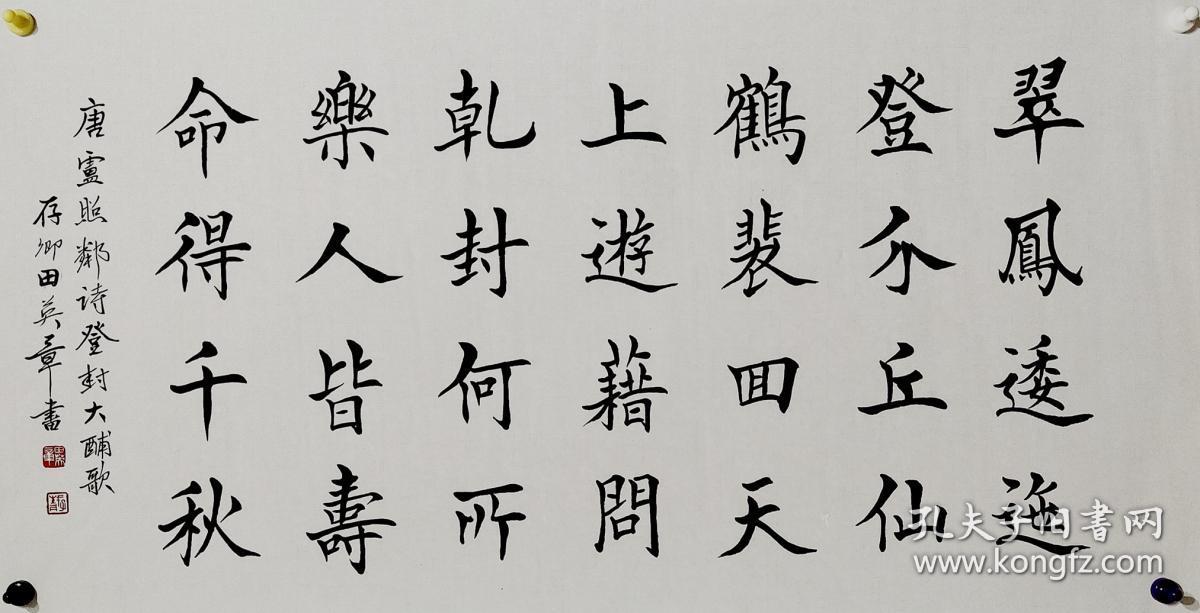 翠鳳逶迤
登介丘仙
鶴裴囬天
上遊藉問
乾封何所
樂人皆壽
命得千秋
唐盧照鄰诗登封大酺歌
存卿田英章書
孔夫子旧书网
www.kongfz.com